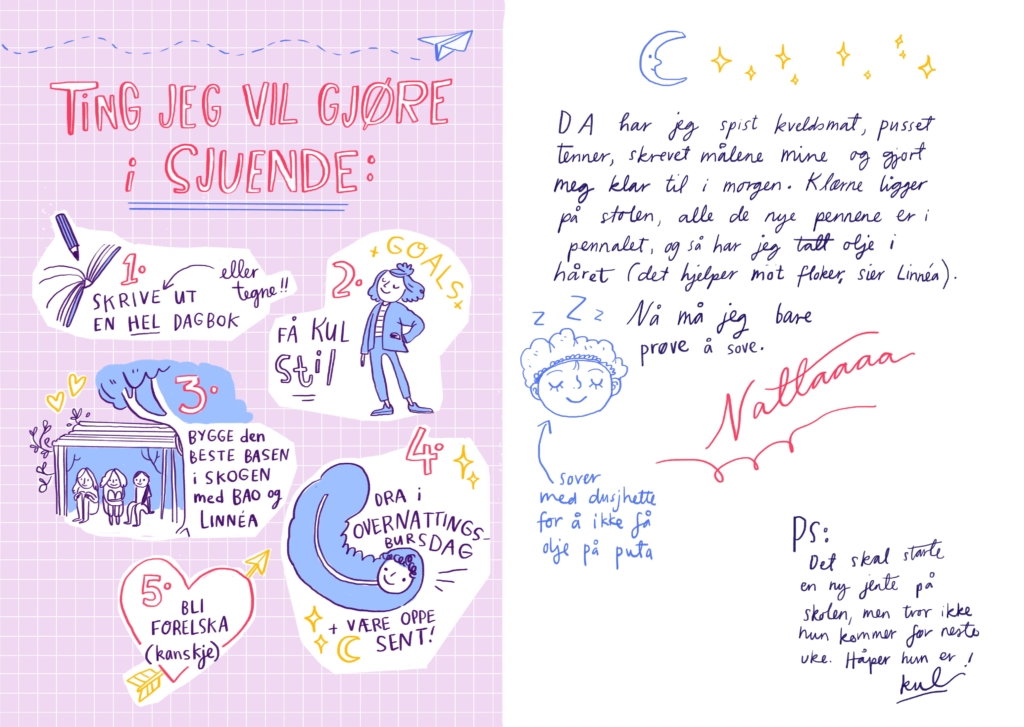 TING JEG VIL GJØRE
i SJUENDE:
1.
SKRIVE UT
EN HEL DAGBOK
eller
tegne!!
2.
GOALS
FÅ KUL
Stil
3.
BYGGE den
BESTE BASEN
i SKOGEN
med BAO og
LINNÉA
4.
DRA i
OVERNATTINGS-
BURSDAG
+ VÆRE OPPE
SENT!
5.
BLI
FORELSKA
(kanskje)
DA har jeg spist kveldsmat, pusset
tenner, skrevet målene mine og gjort
meg klar til i morgen. Klærne ligger
på stolen, alle de nye pennene er i
pennalet, og så har jeg tatt olje i
håret (det hjelper mot floker, sier Linnéa).
Nå må jeg bare
prøve å sove.
Z Z Z
Nattaaaa
sover
med dusjhette
for å ikke få
olje på puta
PS:
Det skal starte
en ny jente på
skolen, men tror ikke
hun kommer før neste
uke. Håper hun er
kul!